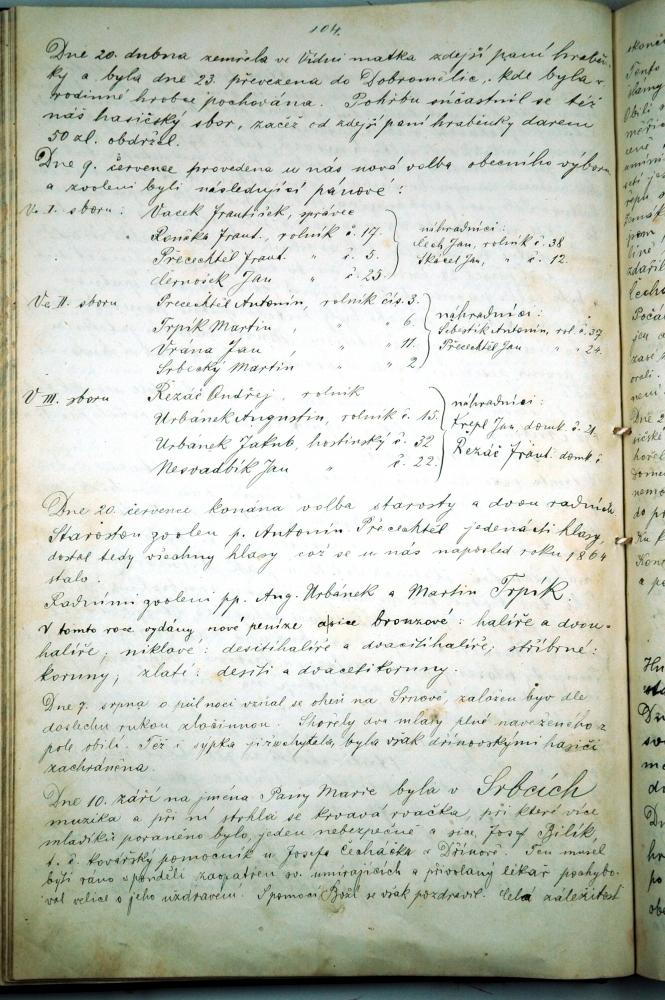 104.
Dne 20. dubna zemřela ve Vídni matka zdejší paní hraběn-
ky a byla dne 23. převezena do Dobromělic, kde byla v
rodinné hrobce pochována. Pohřbu súčastnil se též
náš hasičský sbor, začež od zdejší paní hraběnky darem
50 zl. obdržel.
Dne 9. července provedena u nás nová volba obecního výboru
a zvoleni byli následující pánové:
Ve I. sboru: Vacek František, správce
Frant., rolník č. 17.
Přecechtěl Frant. " č. 5.
Černošek Jan " č. 23.
náhradníci:
Čech Jan, rolník č. 38
Skácel Jan, " č. 12.
Ve II. sboru Přecechtěl Antonín, rolník čís. 3.
Trpík Martin, " " 6.
Vrána Jan " " 11.
Srbecký Martin " " 2
náhradníci:
Šebestík Antonín, rol. č. 37
Přecechtěl Jan " " 24.
V III. sboru Řezáč Ondřej, rolník
Urbánek Augustin, rolník č. 15.
Urbánek Jakub, hostinský č. 32
Nesvadbík Jan " č. 22.
náhradníci:
Jan, domk. č.
Řezáč Frant. domk. č
Dne 20. července konána volba starosty a dvou radních
Starostou zvolen p. Antonín Přecechtěl jedenácti hlasy,
dostal tedy všechny hlasy což se u nás naposled roku 1864
stalo.
Radními zvoleni pp. Aug. Urbánek a Martin Trpík.
V tomto roce vydány nové peníze a sice bronzové: halíře a dvou-
halíře; niklové: desítihalíře a dvacítihalíře; stříbrné:
koruny; zlaté: desíti a dvacetikoruny.
Dne 7. srpna o půlnoci vzňal se oheň na Srnově, založen byv dle
doslechu rukou zločinnou. Shořely dva mlaty plné naveženého z
pole obilí. Též i sypka již zachytala, byla však dřínovskými hasiči
zachráněna.
Dne 10. září na jména Panny Marie byla v Srbcích
muzika a při ní strhla se krvavá rvačka, při které více
mladíků poraněno bylo, jeden nebezpečně a sice Josef Bílík,
t. č. kovářský pomocník u Josefa Čecháčka z Dřínové. Ten musel
býti ráno v pondělí zaopatřen sv. umírajících a přivolaný lékař pochybo-
val velice o jeho uzdravení. S pomocí Boží se však pozdravil. Celá záležitost